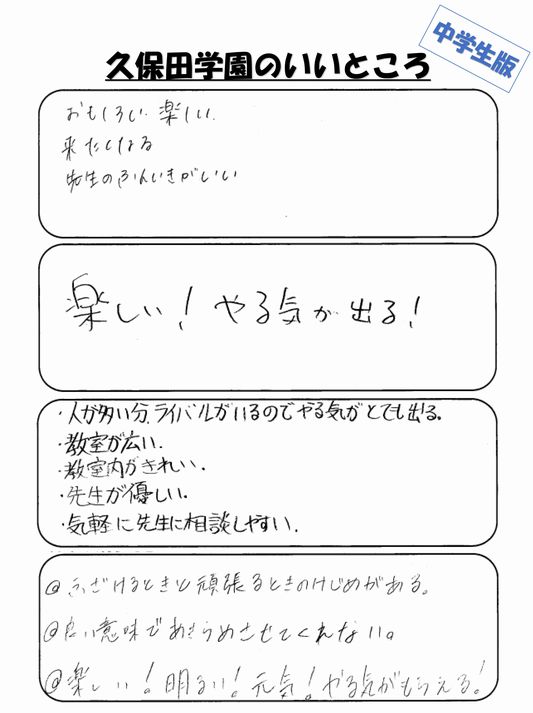 中学生版
久保田学園のいいところ
おもしろい 楽しい.
来たくなる
先生のふんいきがいい
楽しい! やる気が出る!
・人が多い分、ライバルがいるのでやる気がとても出る。
・教室が広い.
・教室内がきれい.
・先生が優しい.
・気軽に先生に相談しやすい.
@ふざけるときと頑張るときのけじめがある。
@良い意味であきらめさせてくれない。
@楽しい!明るい!元気!やる気がもらえる!